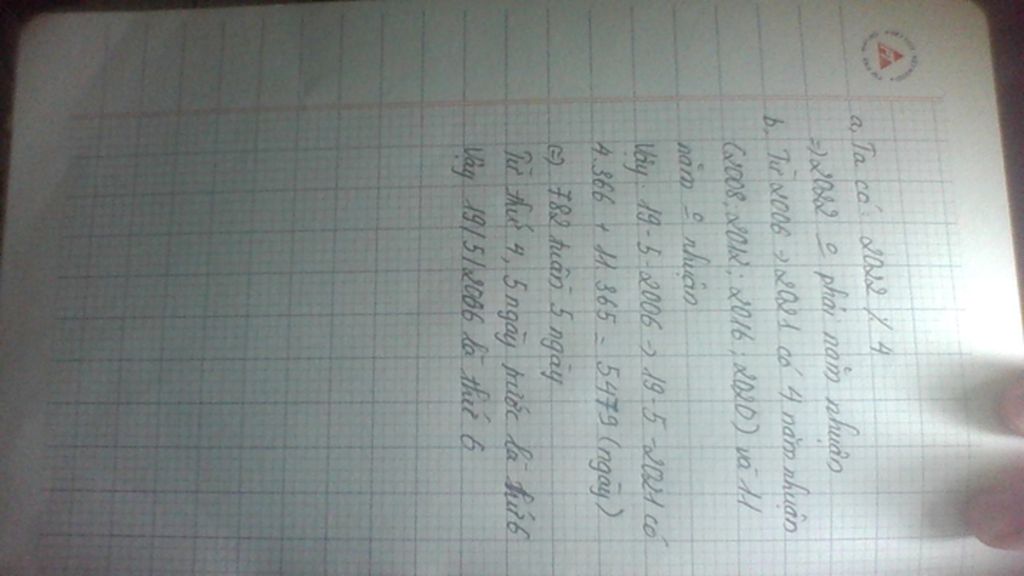 a, Ta có: 2022 ⁒ 4
=> 2022 o phải năm nhuận
b. Từ 2006 -> 2021 có 4 năm nhuận
(2008; 2012; 2016; 2020) và 11
năm o nhuận
Vậy. 19-5-2006 -> 19-5-2021 có
4.366 + 11.365 = 5479 (ngày)
<=> 782 tuần 5 ngày
Từ thứ 4, 5 ngày trước là thứ 6
Vậy 19/5/2006 là thứ 6